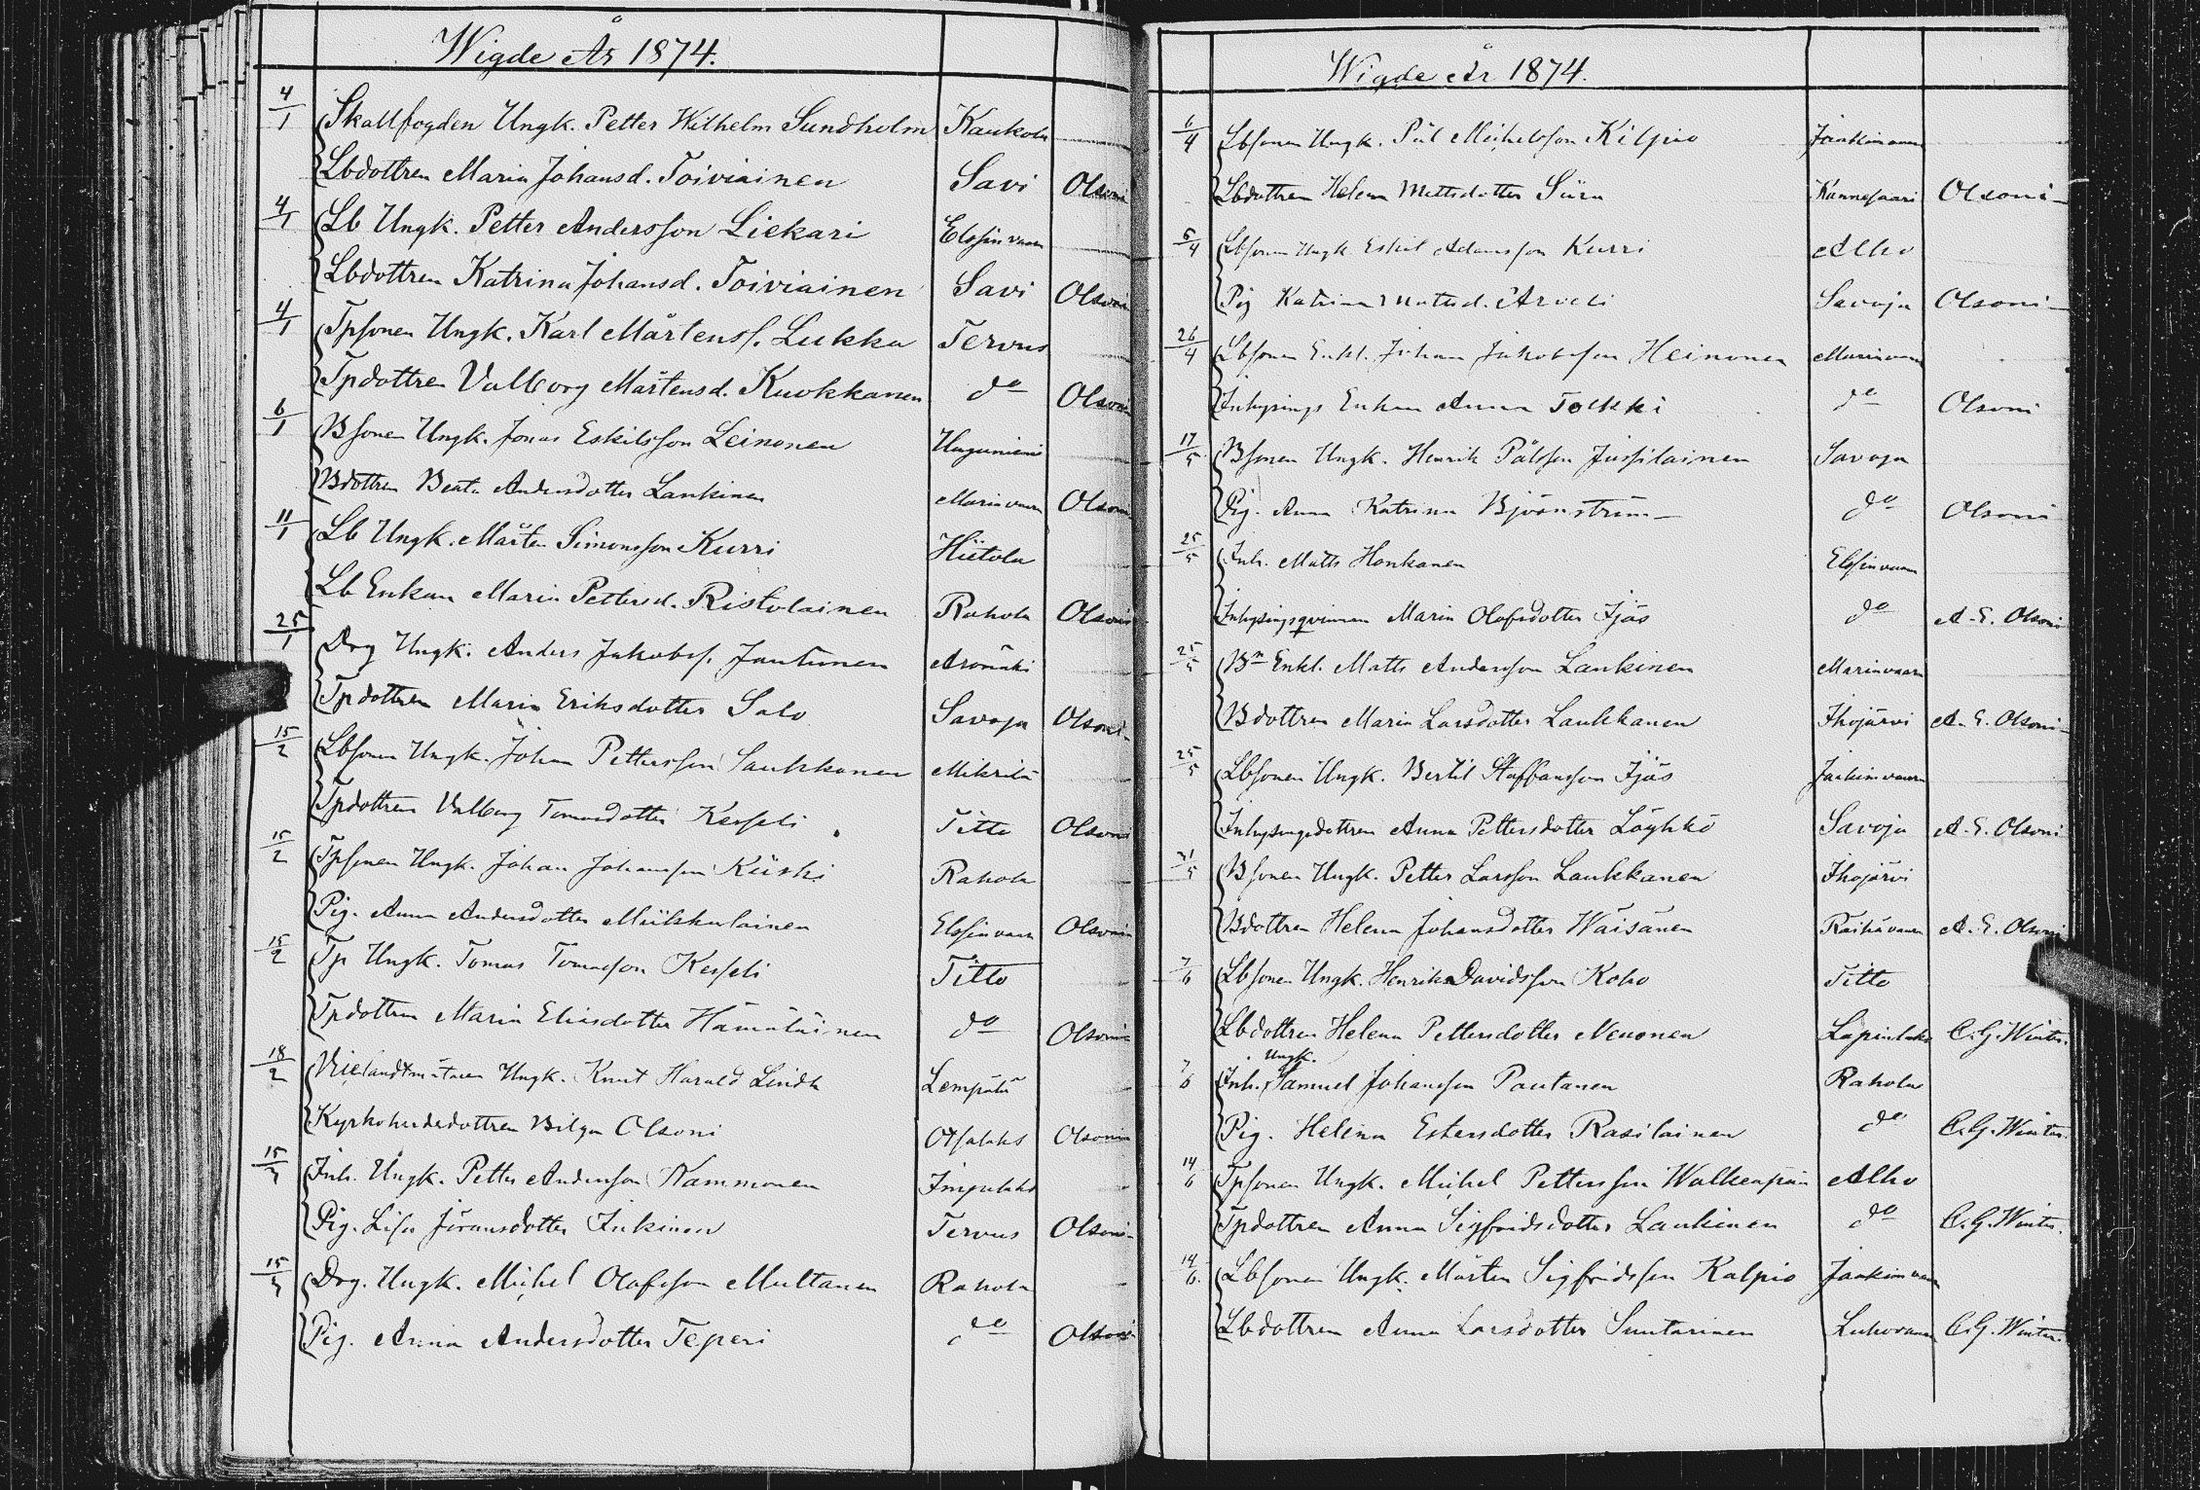 Wigde År 1874.
4/1 Skallfogden Ungk. Petter Wilhelm Sundholm Kaukola
Lbdottren Maria Johansd. Toiviainen Savi Olsoni
4/1 Lb Ungk. Petter Andersson Liekari Elosinvaara
Lbdottren Katrina Johansd. Toiviainen Savi Olsoni
4/1 Tpsonen Ungk. Karl Mårtenss. Lukka Tervus
Tpdottren Valborg Mårtensd. Kuokkanen do Olsoni
6/1 Bsonen Ungk. Jonas Eskilsson Leinonen
Bdottren Beata Andersdotter Lankinen Marinvaara Olsoni
11/1 Lb Ungk. Mårten Simonsson Kurri Hiitola
Lb Enkan Maria Pettersd. Ristolainen Rahola Olsoni
25/1 Drg Ungk. Anders Jakobss. Jantunen Asomäki
Tpdottren Maria Eriksdotter Salo Savoja Olsoni
15/2 Lbsonen Ungk. Johan Pettersson Laukkanen Mikrilä
Tpdottren Valborg Tomasdotter Kesseli Titto Olsoni
15/2 Tpsonen Ungk. Johan Johansson Kiiski Rahola
Pig. Anna Andersdotter Miilskulainen Elosinvaara Olsoni
15/2 Tp Ungk. Tomas Tomasson Kesseli Titto
Tpdottren Maria Eliasdotter Hämäläinen do Olsoni
18/2 Vicelandtmätaren Ungk. Knut Harald Lindh Lempälä
Kyrkoherdedottren Bilya Olsoni Olsoni
15/3 Inh. Ungk. Petter Andersson Kammonen Impilaks
Pig. Lisa Göransdotter Inkinen Tervus Olsoni
15/3 Drg. Ungk. Michel Olofsson Multanen Rahola
Pig. Anna Andersdotter Teperi do Olsoni
Wigde År 1874.
6/4 Lbsonen Ungk. Pål Michelsson Kilpio Jaakimvaara
Lbdottren Helena Mattsdotter Siira Kannasaari Olsoni
6/4 Lbsonen Ungk Eskil Adamsson Kurri Alho
Pig Katrina Mattsd. Arveli Savoja Olsoni
26/4 Lbsonen Enkl. Johan Jakobsson Heinonen Marinvaara
Inhysings Enkan Anna Tolkki do Olsoni
17/5 Bsonen Ungk. Henrik Pålsson Jussilainen Savoja
Pig. Anna Katrina Björnström do Olsoni
25/5 Inh. Matts Honkanen Elosinvaara
Inhysingsqvinnan Maria Olofsdotter Ijäs do A. E. Olsoni
25/5 Bn Enkl. Matts Andersson Lankinen Marinvaara
Bdottren Maria Larsdotter Laukkanen Ihojärvi A. E. Olsoni
25/5 Lbsonen Ungk. Bertil Staffansson Ijäs Jaakimvaara
Inhysingsdottren Anna Pettersdotter Löyhkö Savoja A. E. Olsoni
31/5 Bsonen Ungk. Petter Larsson Laukkanen Ihojärvi
Bdottren Helena Johansdotter Wäisänen Räihävaara A. E. Olsoni
7/6 Lbsonen Ungk. Henrik Davidsson Koho Titto
Lbdottren Helena Pettersdotter Neuonen Lapinlaks C. G. Winter.
7/6 Inh. Ungk. Samuel Johansson Pautanen Rahola
Pig. Helena Estersdotter Rasilainen do C. G. Winter.
14/6 Tpsonen Ungk. Michel Pettersson Walkeapää Alho
Tpdottren Anna Sigfridsdotter Lankinen do C. G. Winter.
14/6. Lbsonen Ungk. Mårten Sigfridsson Kalpio Jaakimvaara
Lbdottren Anna Larsdotter Suutarinen Luhovaara C. G. Winter.